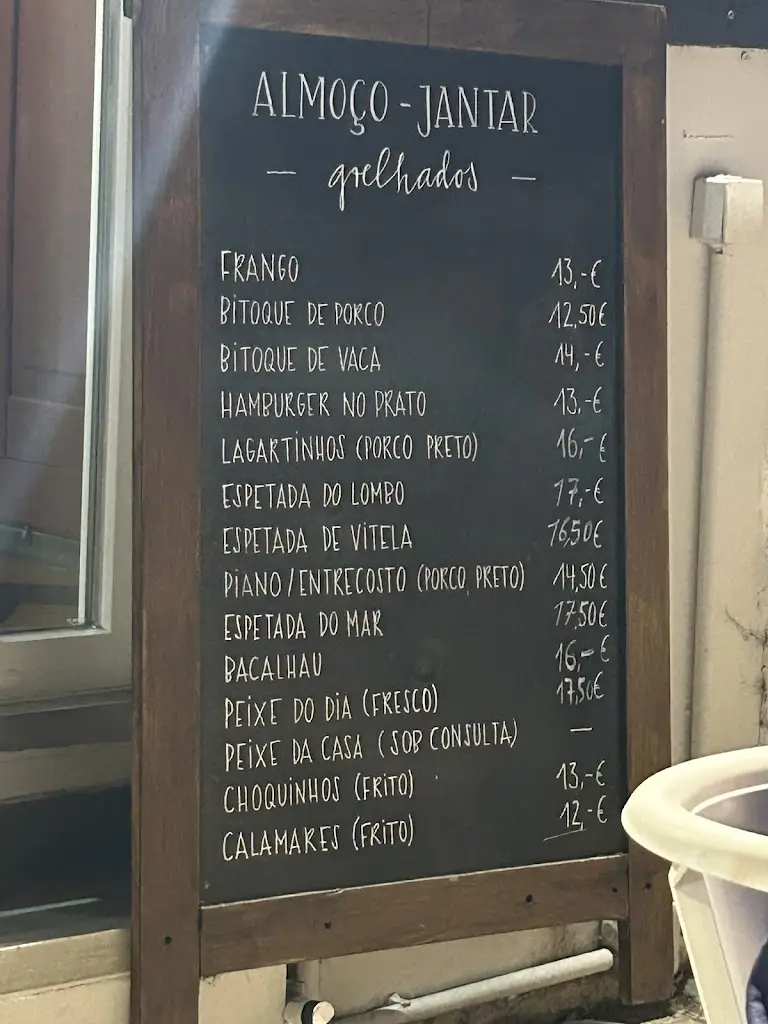 ALMOÇO - JANTAR
— grelhados —
FRANGO 13,-€
BITOQUE DE PORCO 12,50€
BITOQUE DE VACA 14,-€
HAMBURGER NO PRATO 13,-€
LAGARTINHOS (PORCO PRETO) 16,-€
ESPETADA DO LOMBO 17,-€
ESPETADA DE VITELA 16,50€
PIANO/ENTRECOSTO (PORCO PRETO) 14,50€
ESPETADA DO MAR 17,50€
BACALHAU 16,-€
PEIXE DO DIA (FRESCO) 17,50€
PEIXE DA CASA (SOB CONSULTA) —
CHOQUINHOS (FRITO) 13,-€
CALAMARES (FRITO) 12,-€